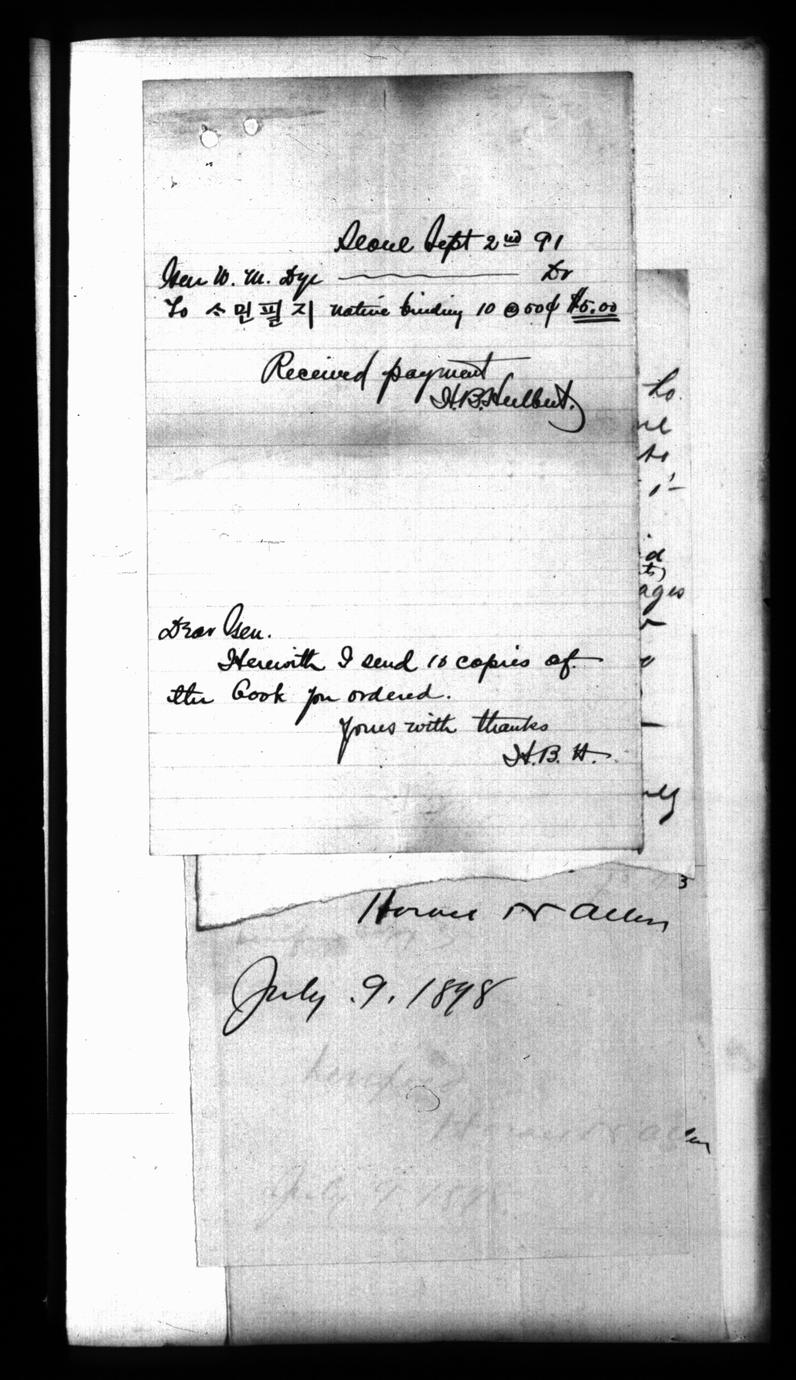 Seoul Sept 2nd 91
Gen W. M. Dye ——— Dr
To 스민필지 native binding 10 @ 50¢ $5.00
Received payment
H.B. Hulbert.
Dear Gen.
Herewith I send 10 copies of
the book you ordered.
Yours with thanks
H. B. H.
to
to
ages
3
Horace N Allen
July . 9 . 1898
Horace N Allen
July 9. 1898